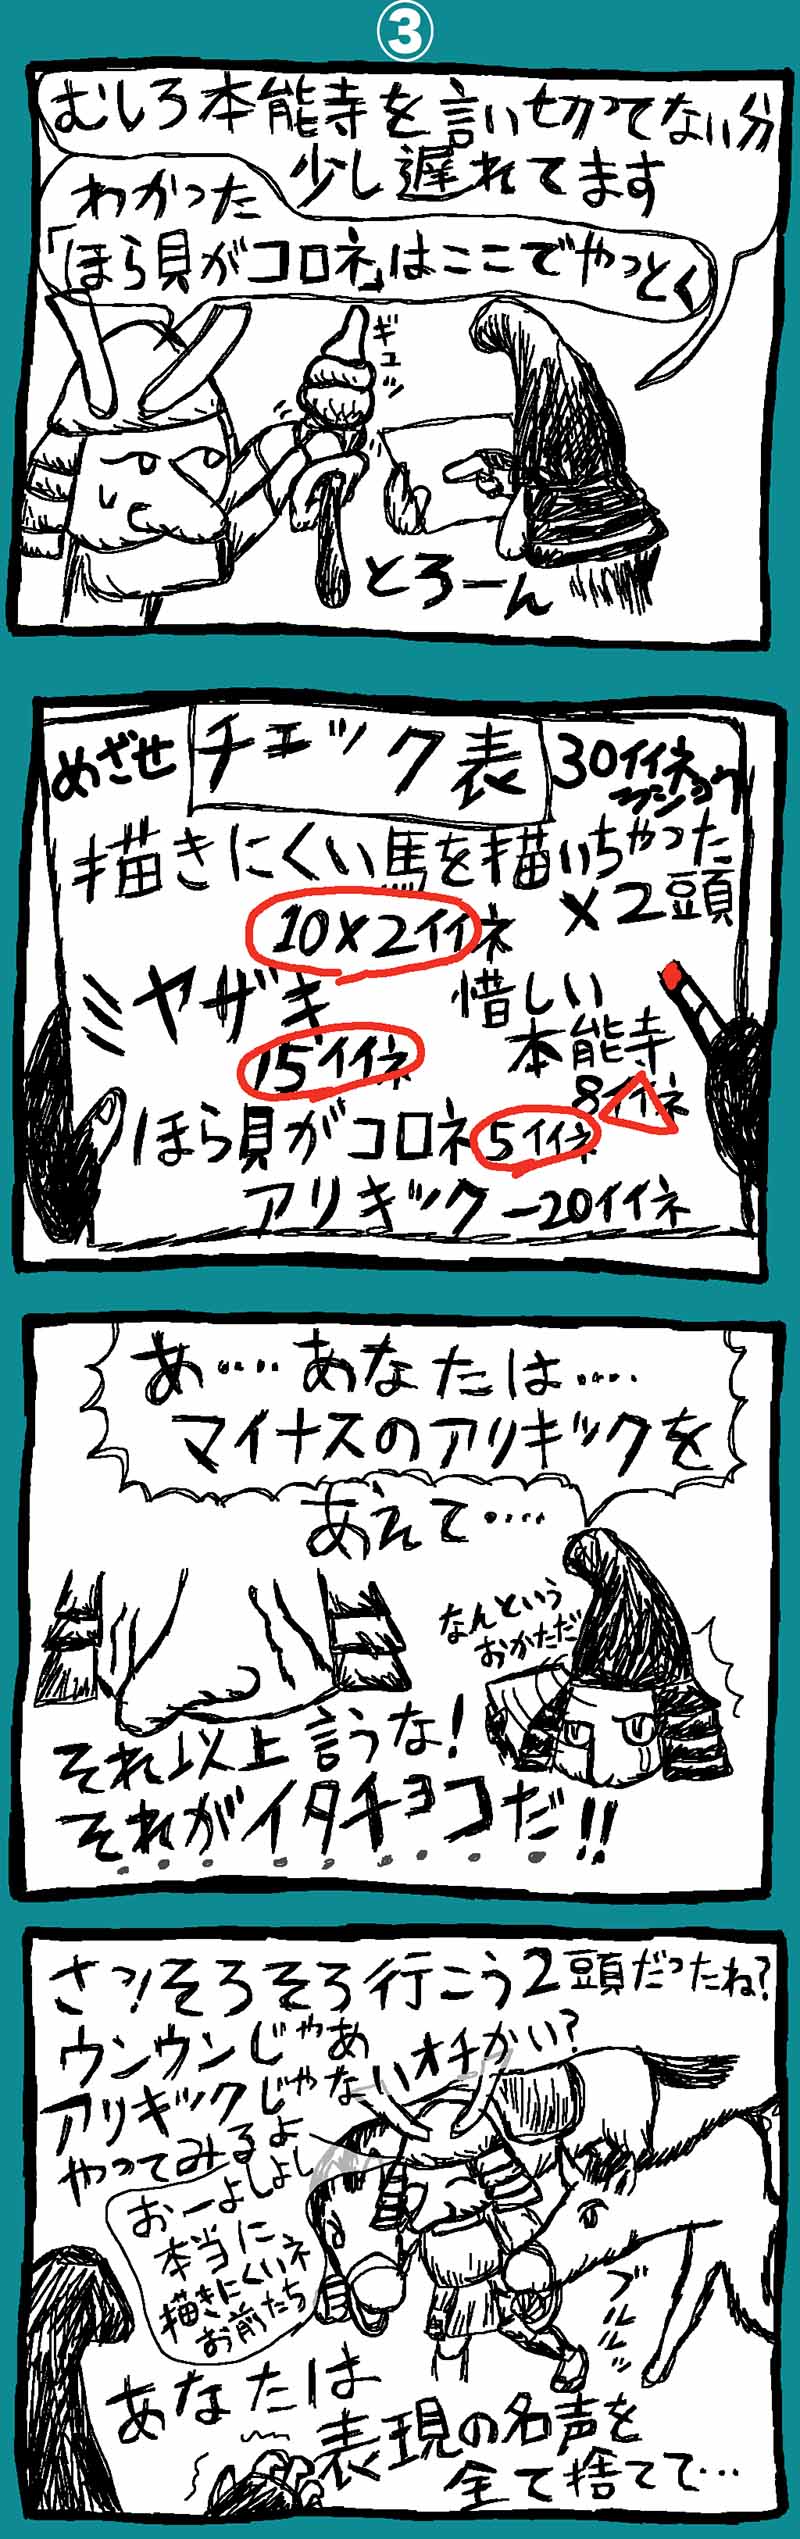 ③
むしろ本能寺を言い切ってない分
少し遅れてます
わかった
「ほら貝がコロネ」はここでやっとく
ギュッ
とろーん
めざせ
チェック表
30イイネ
描きにくい馬を描いちゃった
×2頭
10×2イイネ
ミヤザキ
15イイネ
惜しい
本能寺
8イイネ
ほら貝がコロネ 5イイネ
アリキック −20イイネ
あ‥‥あなたは‥‥
マイナスのアリキックを
あえて‥‥
なんという
おかただ
それ以上言うな!
それがイタチョコだ!!
さっ!そろそろ行こう2頭だったね?
ウンウンじゃあ
アリキックじゃないオチかい?
やってみるよ
おーよしよし
本当に
描きにくいネ
お前たち
ブルルルッ
あなたは
表現の名声を
全て捨てて…